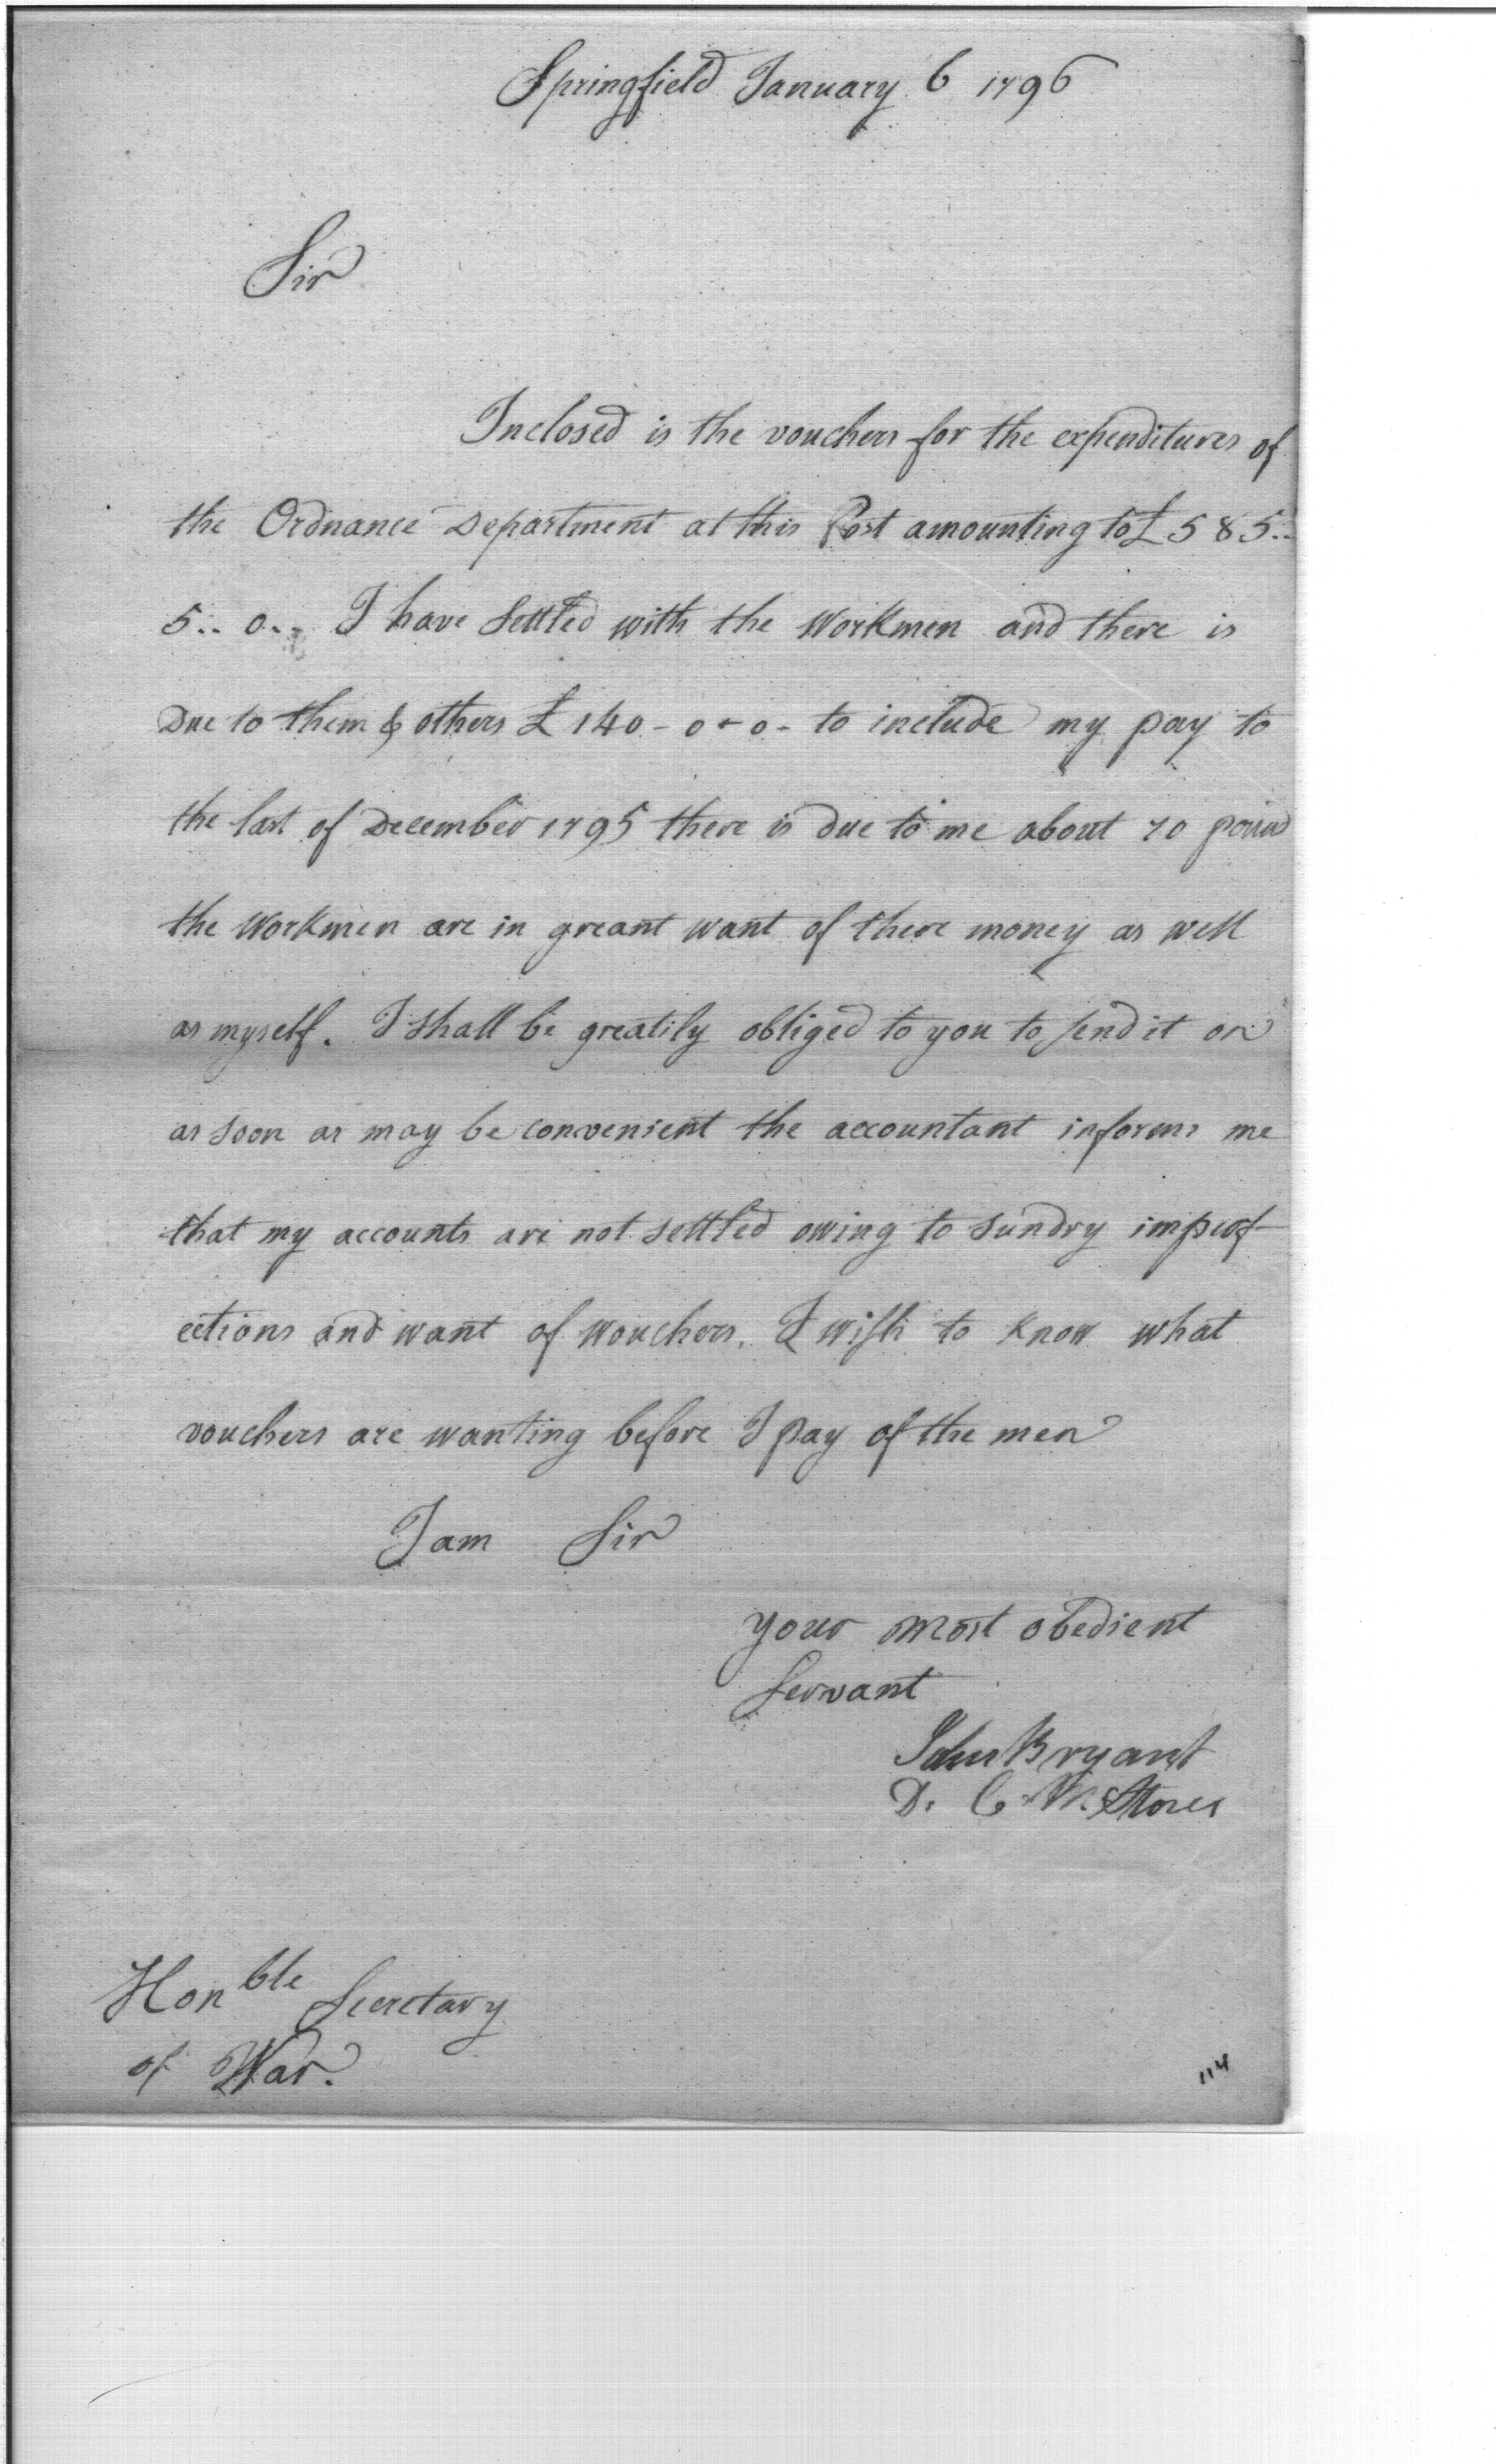 Springfield January 6 1796
Sir
Inclosed is the vouchers for the expenditures of
the Ordnance Department at this Post amounting to £ 585..
5.. 0.. I have Settled with the Workmen and there is
Due to them & others £ 140 - 0 - 0 - to include my pay to
the last of December 1795 there is due to me about 70 pound
the Workmen are in greant want of there money as well
as myself. I shall be greatily obliged to you to send it on
as soon as may be convenient the accountant informs me
that my accounts are not settled owing to sundry imperf-
ections and want of wouchers. I wish to know what
vouchers are wanting before I pay of the men
I am Sir
your most obedient
Servant
John Bryant
D. C. M. Stores
Honble Secretary
of War.
114